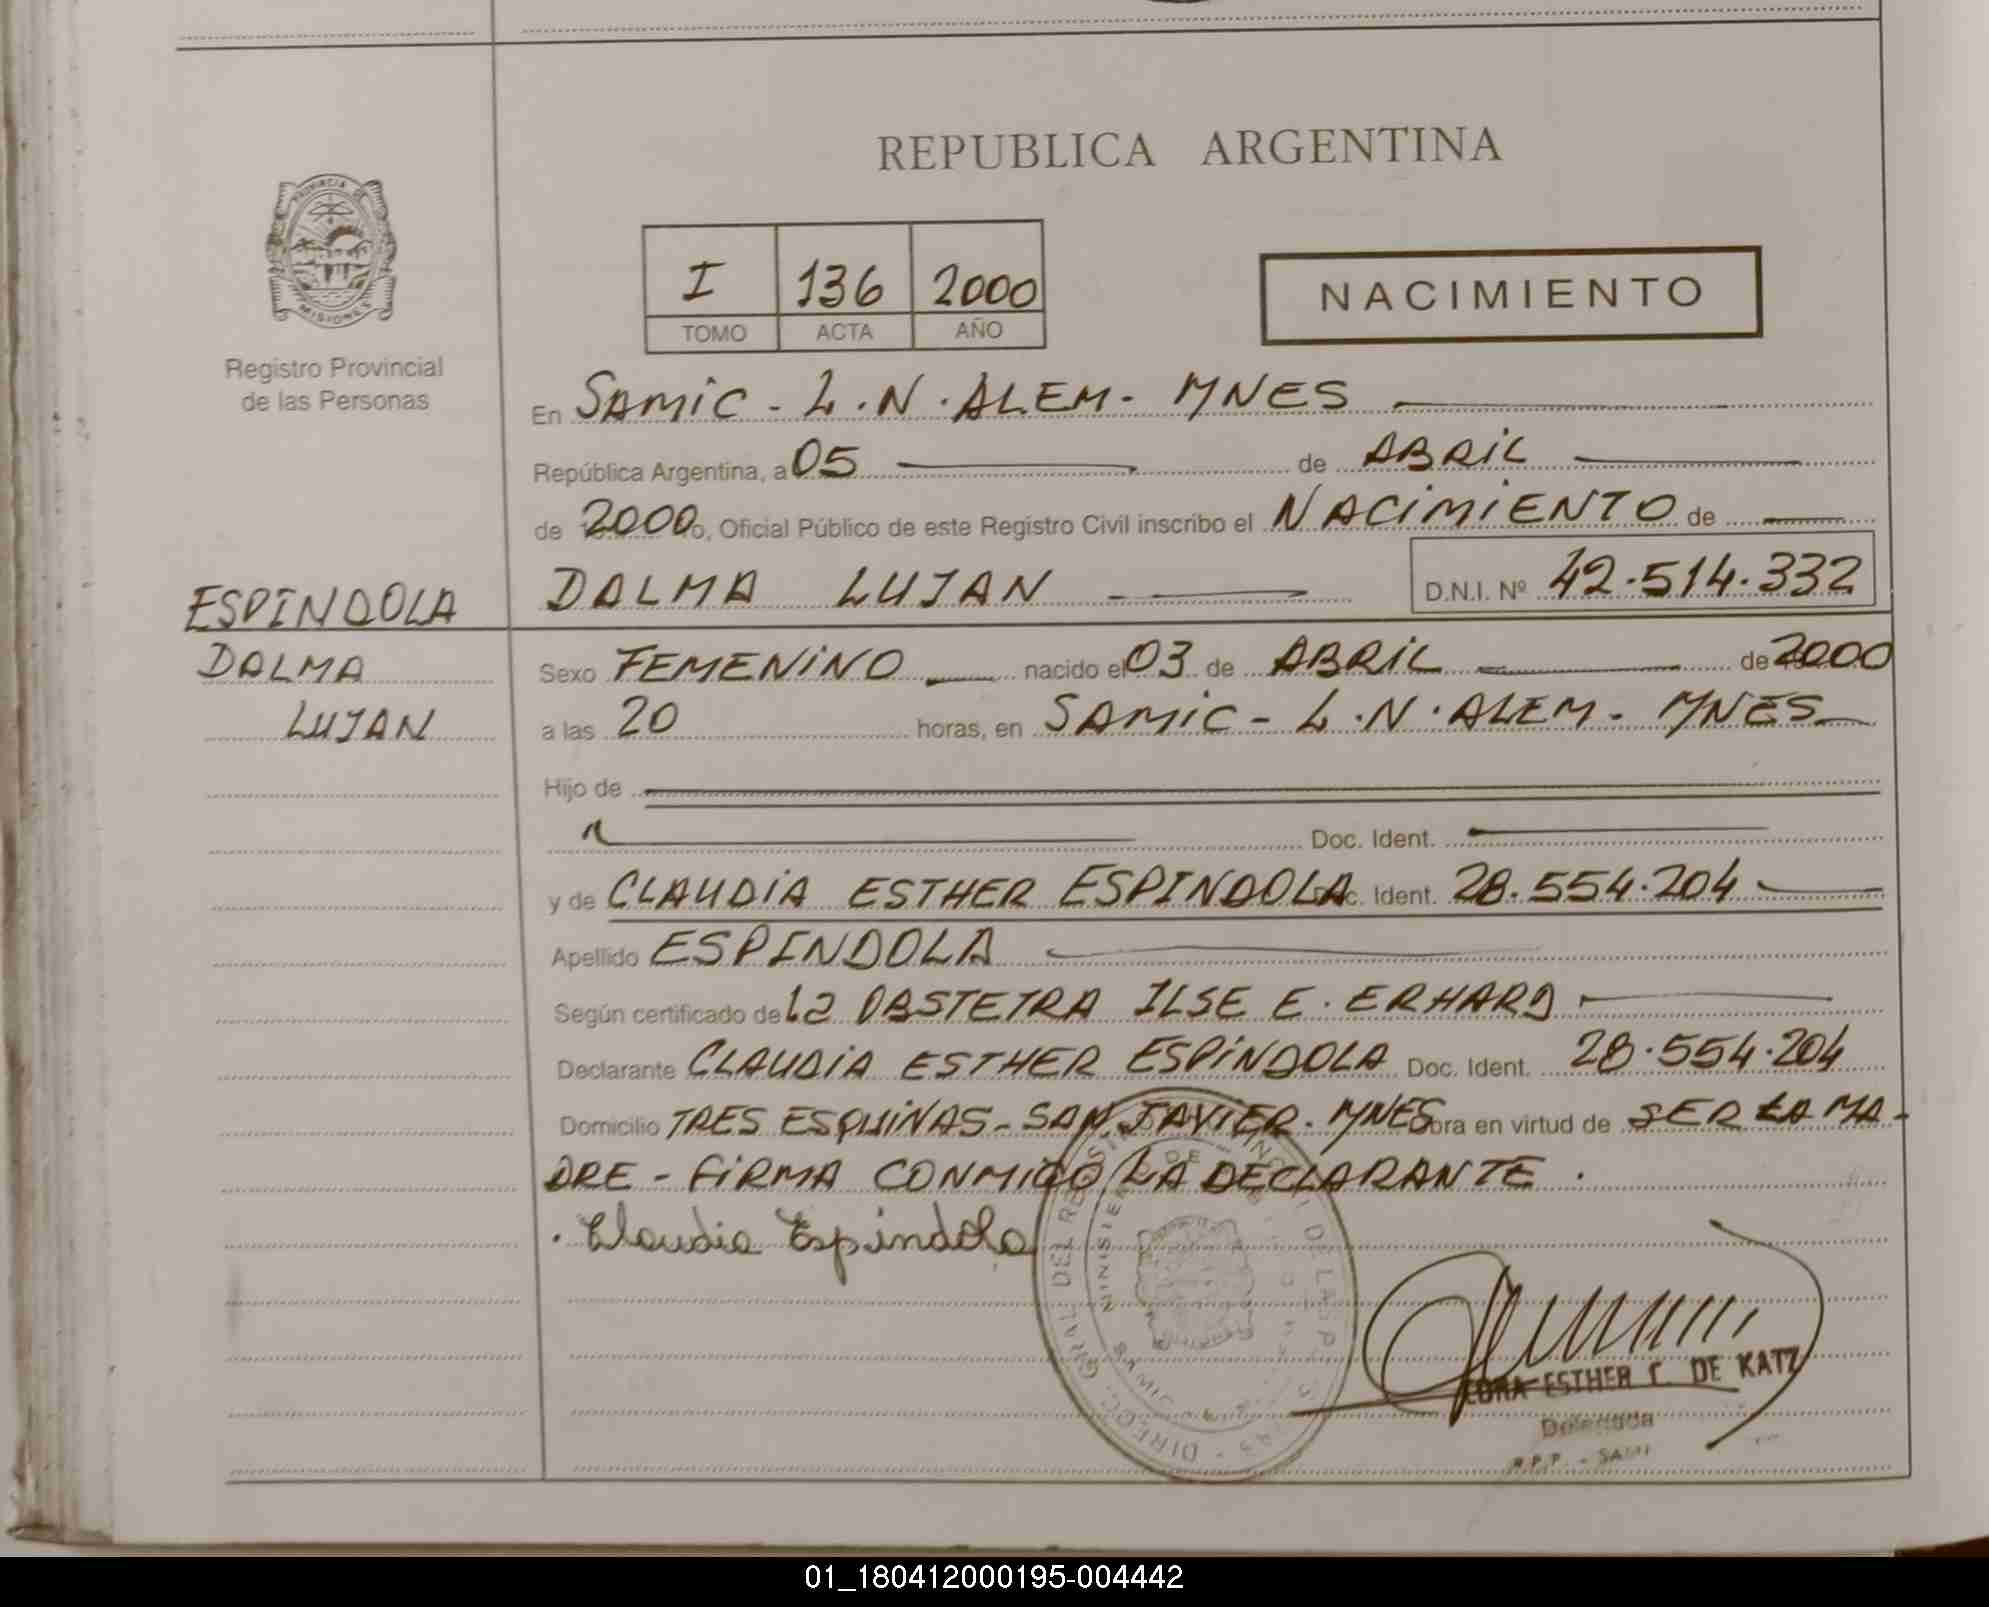 REPUBLICA ARGENTINA
PROVINCIA DE MISIONES
Registro Provincial
de las Personas
I 136 2000
TOMO ACTA AÑO
NACIMIENTO
En SAMIC - L.N.ALEM - MNES
República Argentina, a 05 de ABRIL
de 2000 o, Oficial Público de este Registro Civil inscribo el NACIMIENTO de
DALMA LUJAN D.N.I. Nº 42.514.332
ESPINDOLA
DALMA
LUJAN
Sexo FEMENINO nacido el 03 de ABRIL de 2000
a las 20 horas, en SAMIC - L.N.ALEM - MNES
Hijo de
Doc. Ident.
y de CLAUDIA ESTHER ESPINDOLA Doc. Ident. 28.554.204
Apellido ESPINDOLA
Según certificado de La OBSTETRA ILSE E. ERHARD
Declarante CLAUDIA ESTHER ESPINDOLA Doc. Ident. 28.554.204
Domicilio TRES ESQUINAS - SAN JAVIER - MNES obra en virtud de SER LA MA-
DRE - FIRMA CONMIGO LA DECLARANTE.
Claudia Espindola
ESTHER DE KATZ
Delegada
R.P.P. - SAMIC
01_180412000195-004442